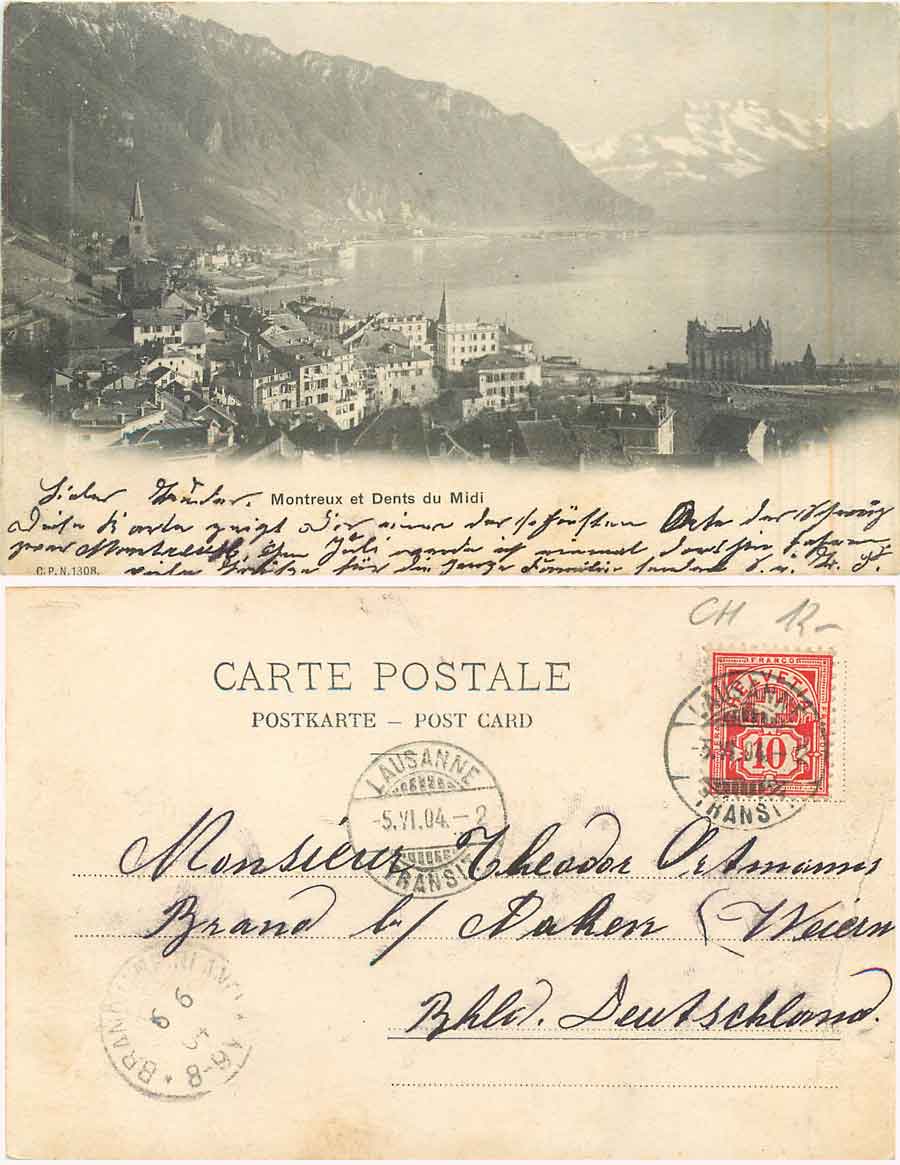 Lieber Bruder. Montreux et Dents du Midi
Diese Karte zeigt Dir einen der schönsten Orte der Schweiz
zwar Montreux, Juli werde ich einmal dorthin fahren
viele Grüße für die ganze Familie sendet
C.P.N.1308.
CH 12-
CARTE POSTALE
POSTKARTE – POST CARD
FRANCO
HELVETIA
10
LAUSANNE
-5.VI.04.-2
TRANSIT
LAUSANNE
-5.VI.04.-2
TRANSIT
Monsieur Theodor Ortmanns
Brand b/ Aachen (Weiern
Rhld. Deutschland.
BRAND
6 6
8-9V